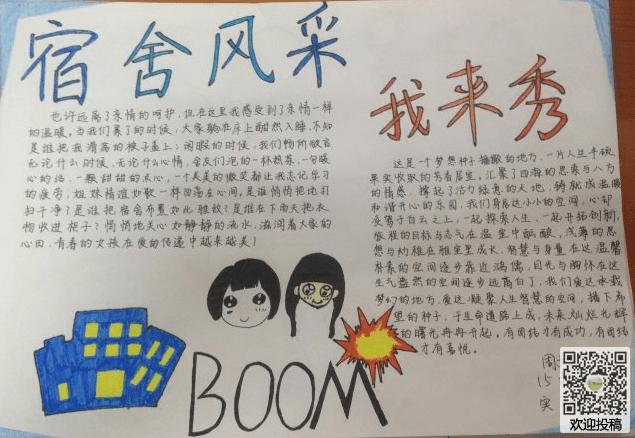 宿舍风采
我来秀
也许远离了亲情的呵护，但在这里我感受到了亲情一样
的温暖。当我们累了的时候，大家躺在床上酣然入睡，不知
是谁把我滑落的被子盖上；闲暇的时候，我们畅所欲言
无论什么时候，无论什么心情，舍友们泡的一杯热茶，一句暖
心的话，一颗甜甜的点心，一个天美的微笑都让我忘记学习
的疲劳，姐妹情谊如歌一样回荡在心间，是谁悄悄把地打
扫干净？是谁把宿舍布置如此雅致？是谁在下雨天把衣
物收进柜子？悄悄地关心如静静的流水，滋润着大家的
心田，青春的女孩在爱的传递中越来越美！
这是一个梦想种子播撒的地方，一片人生丰硕
果实收取的秀各居室，汇聚了四海的思索与八方
的情感，撑起了活力绿意的天地，铸就成温暖
和谐开心的乐园，我们身居这小小的空间，心却
安驾于白云之上，一起探索人生，一起开拓创新，
旅程的目标与志气在温室中酝酿，浅薄的思
想与幼稚在雅室里成长，智慧与身量在这温馨
朴素的空间逐步靠近鸿儒，目光与胸怀在这
生气盎然的空间逐步远离自己，我们爱这承载
梦幻的地方，爱这凝聚人生智慧的空间，播下希
望的种子，于生命道路上成，未来灿烂光辉
的曙光冉冉升起。有团结才有成功，有团结
才有喜悦。
BOOM
周
15
实
欢迎投稿